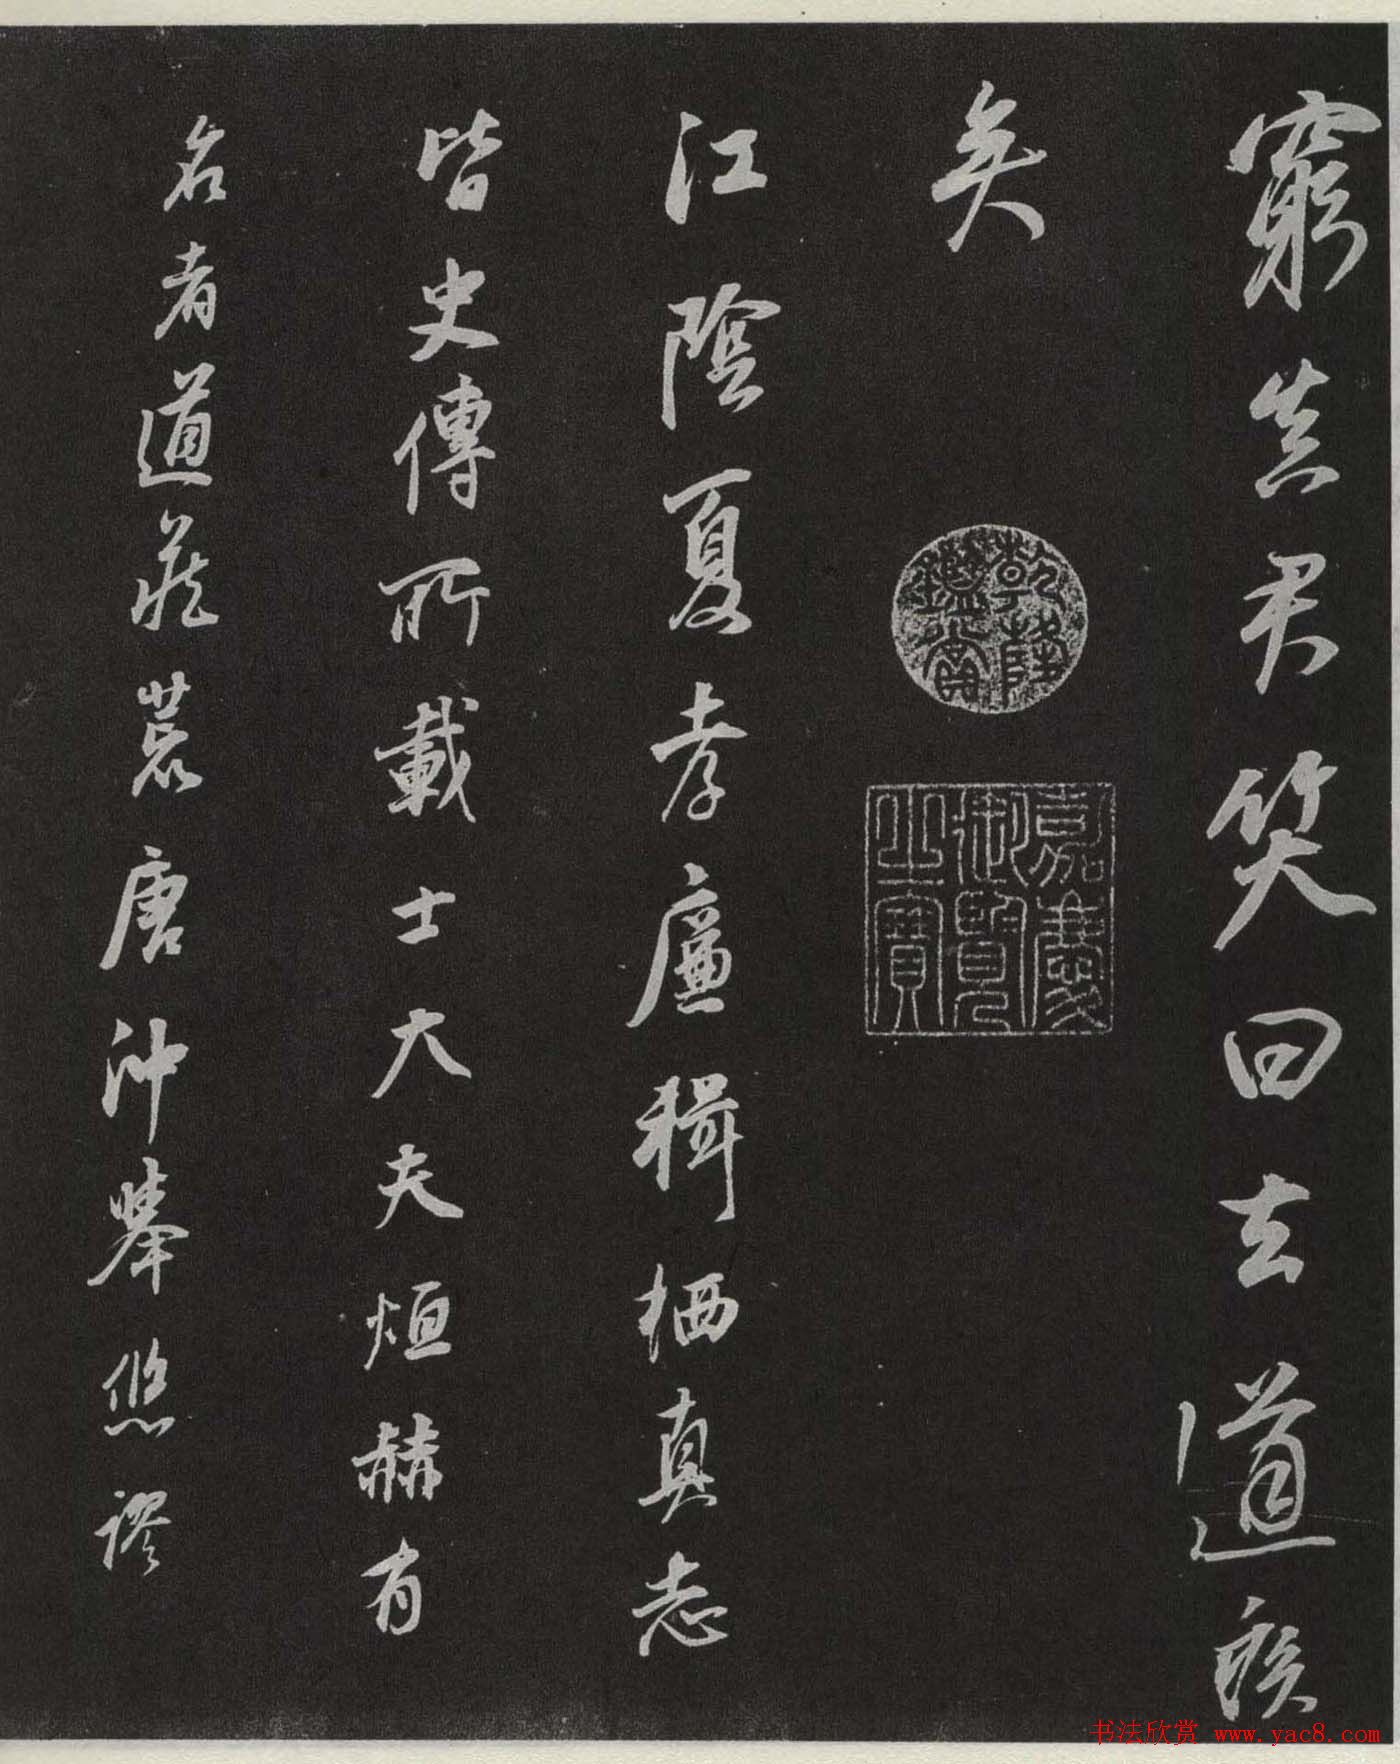 窮君笑曰去道疾
矣
乾隆鑑賞
嘉慶御覽之寶
江陰夏孝廉輯栖真志
皆史傳所載士大夫烜赫有
名者道藏荒唐沖舉悠謬
书法欣赏 www.yac8.com